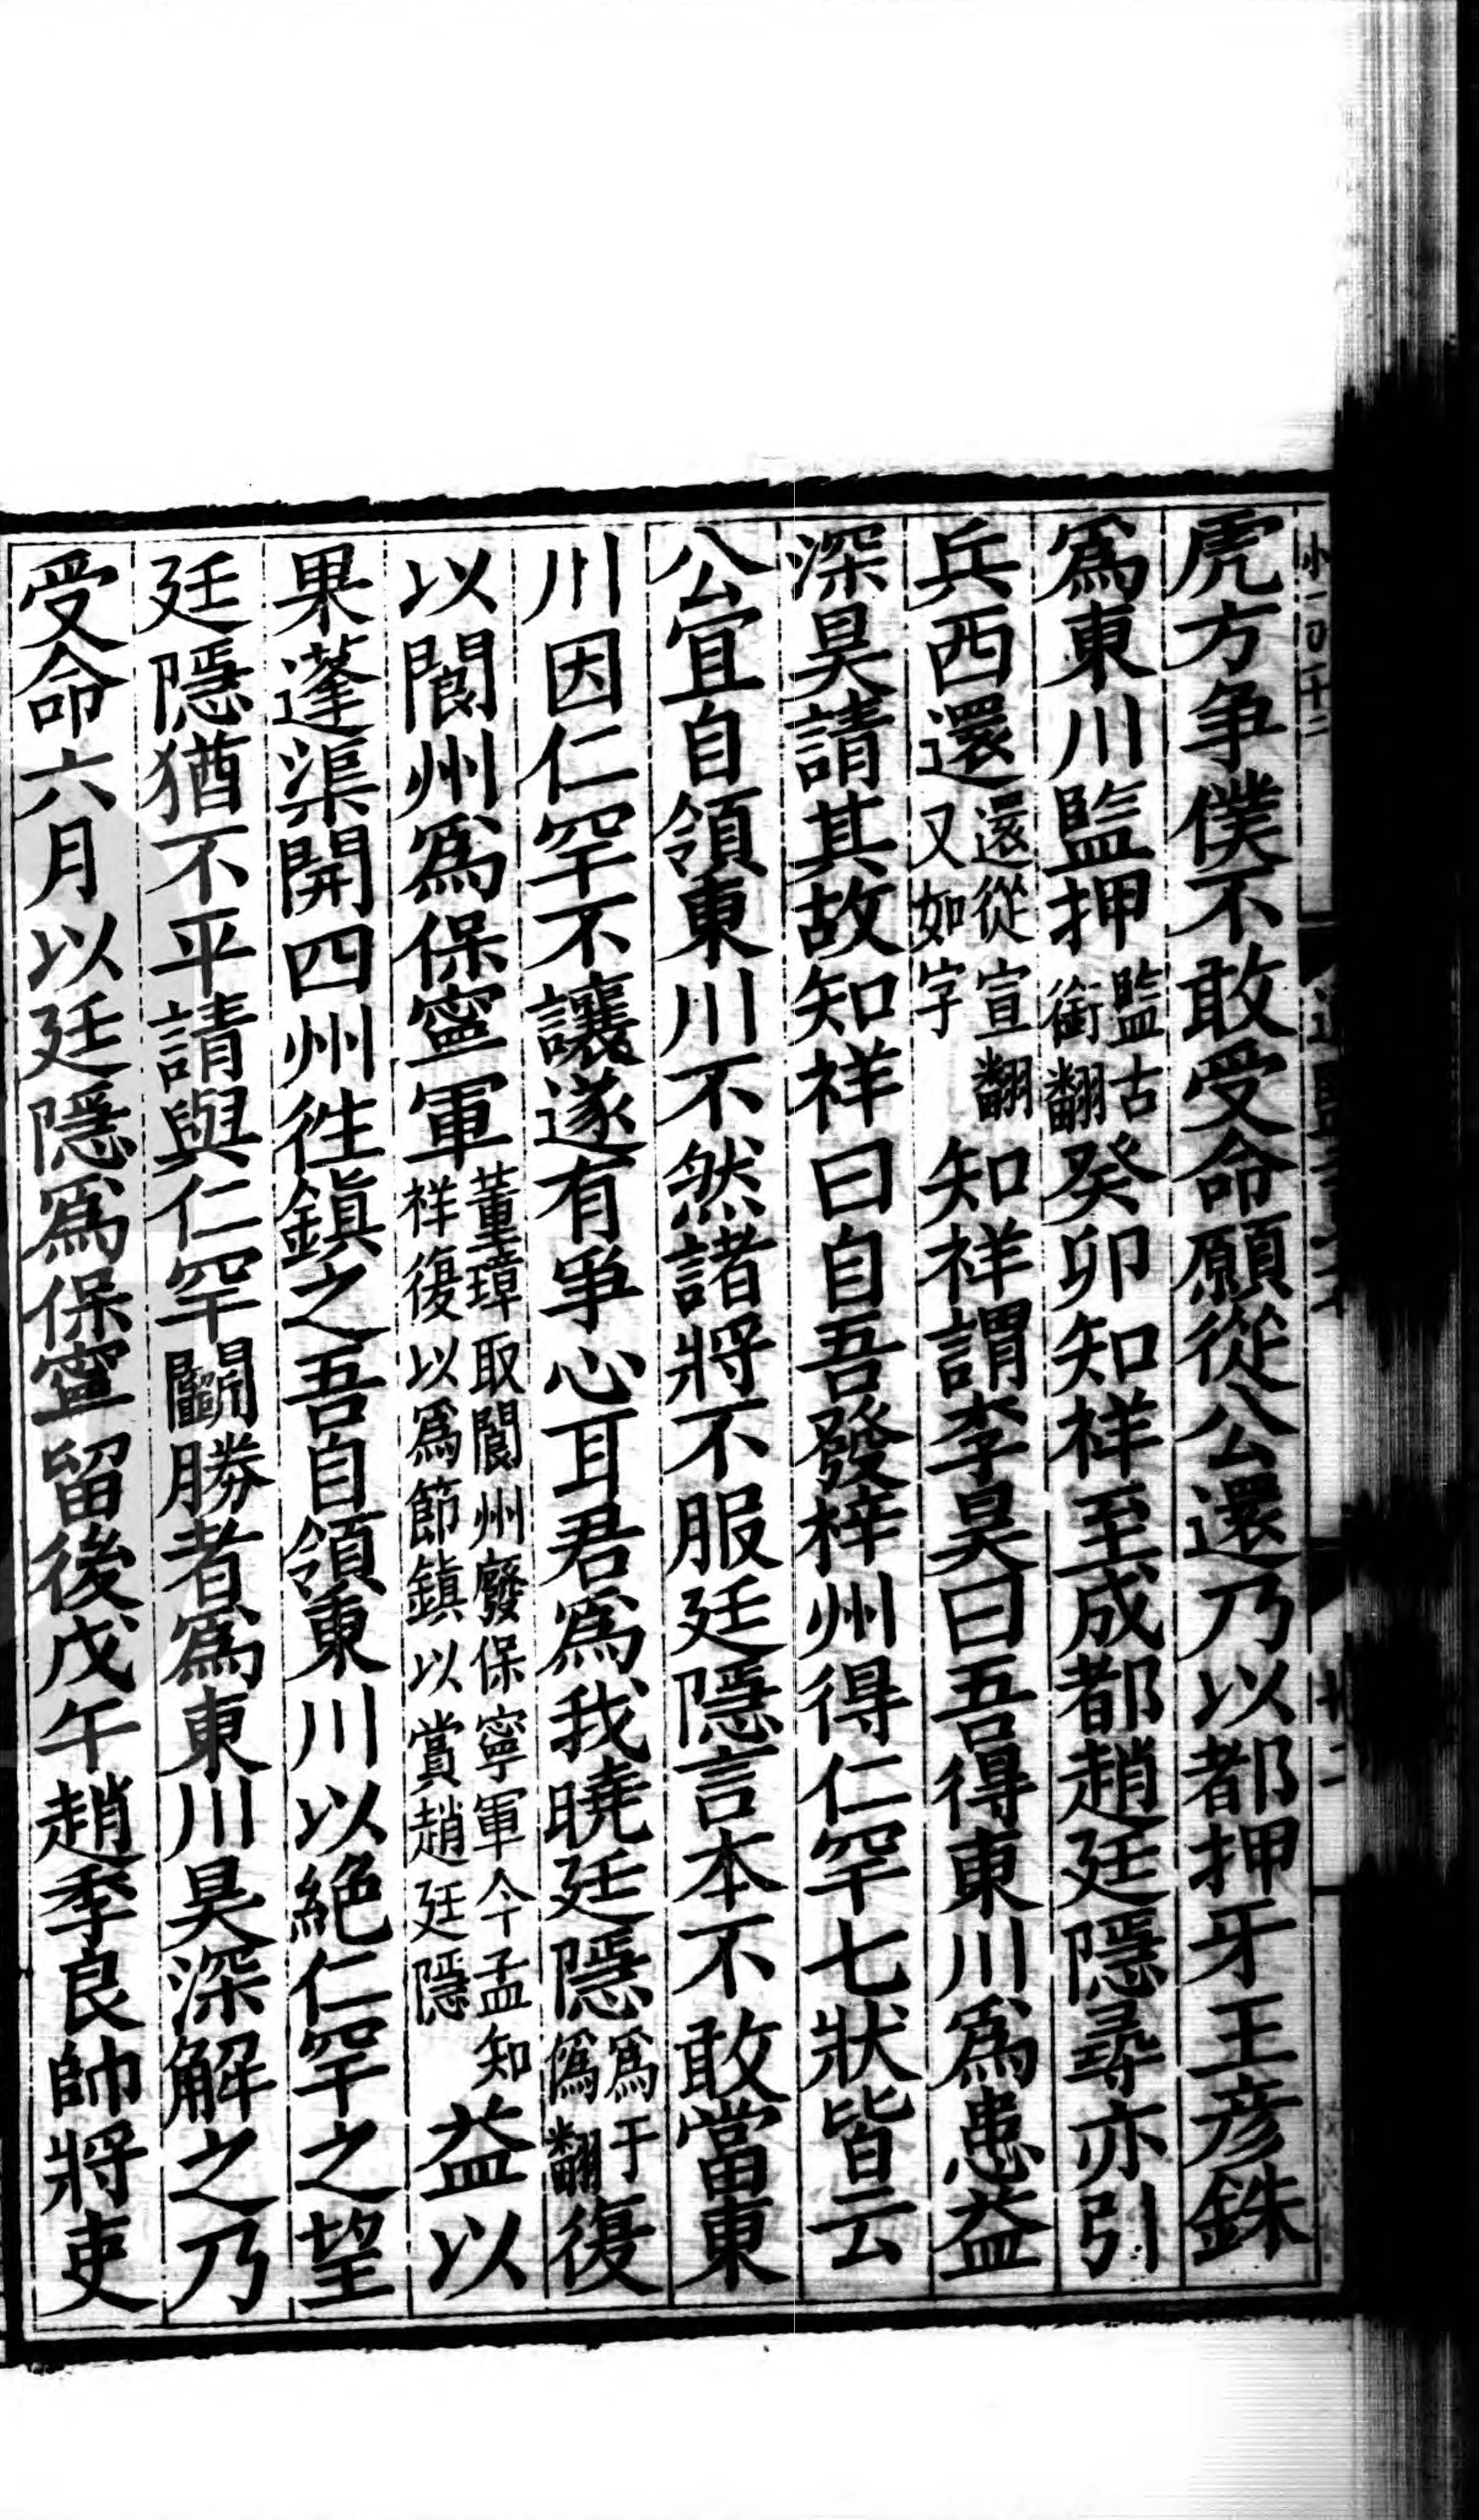 虎方爭僕不敢受命願從公還乃以都押牙王彥銖
爲東川監押監古銜翻癸卯知祥至成都趙廷隱尋亦引
兵西還還從宣翻又如字知祥謂李昊曰吾得東川爲患益
深昊請其故知祥曰自吾發梓州得仁罕七狀皆云
公宜自領東川不然諸將不服廷隱言本不敢當東
川因仁罕不讓遂有爭心耳君爲我曉廷隱爲于僞翻復
以閬州爲保寧軍董璋取閬州廢保寧軍今孟知祥復以爲節鎮以賞趙廷隱益以
果蓬渠開四州徃鎮之吾自領東川以絕仁罕之望
廷隱猶不平請與仁罕鬭勝者爲東川昊深解之乃
受命六月以廷隱爲保寧留後戊午趙季良帥將吏